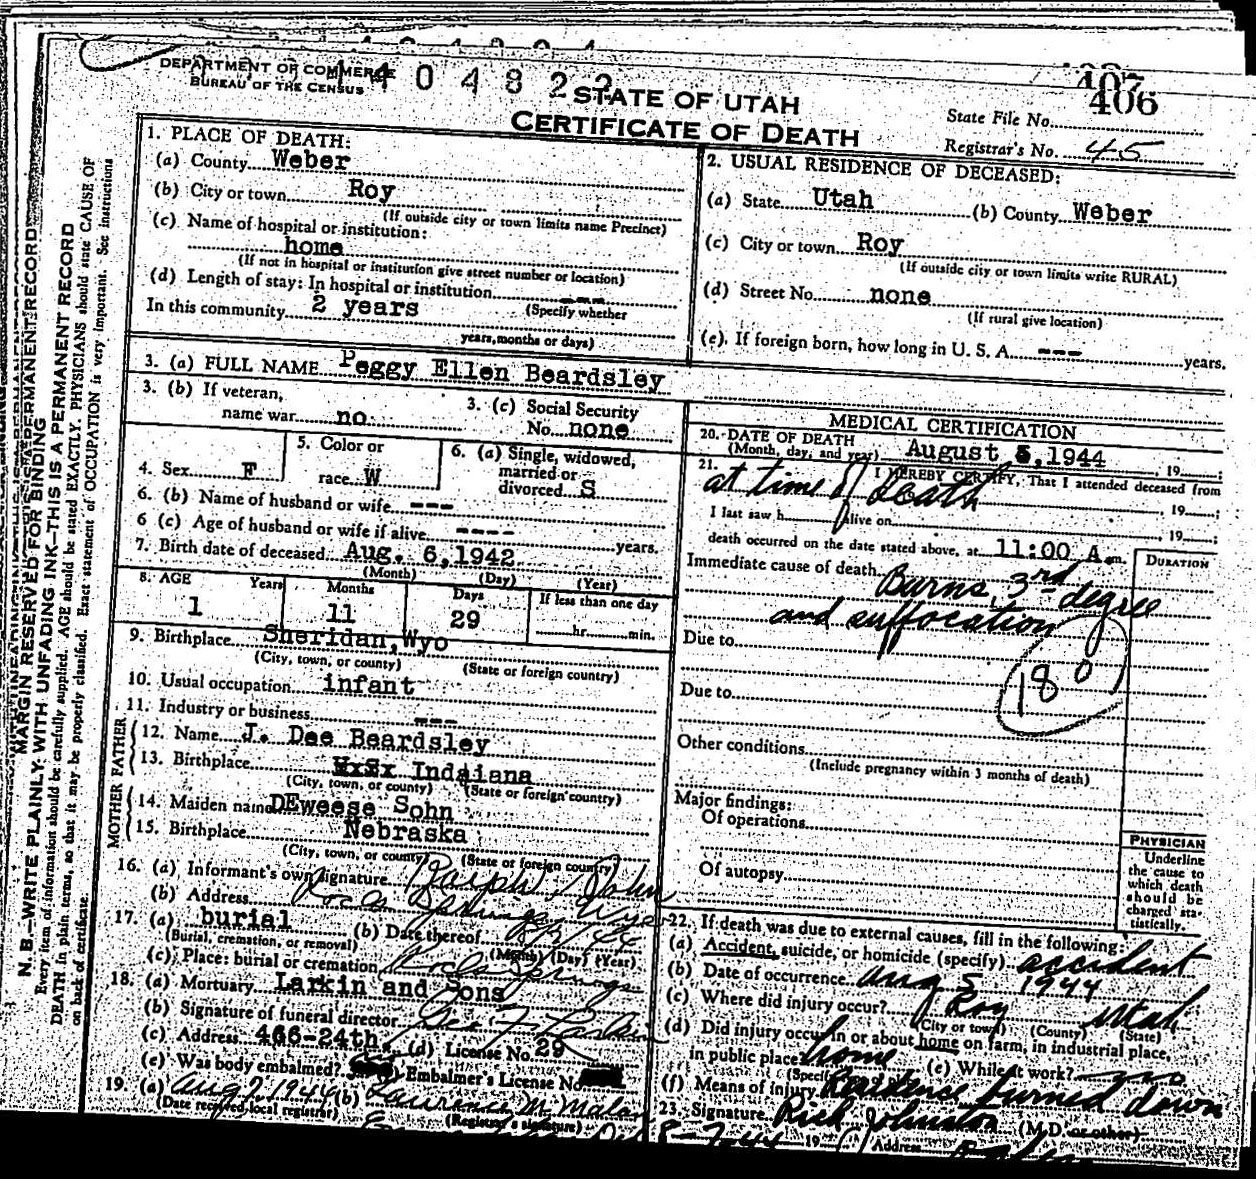 DEPARTMENT OF COMMERCE
BUREAU OF THE CENSUS
1 4 0 4 8 2 2
STATE OF UTAH
CERTIFICATE OF DEATH
407
406
State File No.
Registrar's No. 45
MARGIN RESERVED FOR BINDING
N. B.—WRITE PLAINLY WITH UNFADING INK—THIS IS A PERMANENT RECORD
Every item of information should be carefully supplied. AGE should be stated EXACTLY. PHYSICIANS should state CAUSE OF
DEATH in plain terms, so that it may be properly classified. Exact statement of OCCUPATION is very important. See instructions
on back of certificate.
1. PLACE OF DEATH:
(a) County Weber
(b) City or town Roy
(If outside city or town limits name Precinct)
(c) Name of hospital or institution:
home
(If not in hospital or institution give street number or location)
(d) Length of stay: In hospital or institution ---
(Specify whether
In this community 2 years
years, months or days)
2. USUAL RESIDENCE OF DECEASED:
(a) State Utah (b) County Weber
(c) City or town Roy
(If outside city or town limits write RURAL)
(d) Street No. none
(If rural give location)
(e). If foreign born, how long in U. S. A. --- years.
3. (a) FULL NAME Peggy Ellen Beardsley
3. (b) If veteran,
name war no
3. (c) Social Security
No. none
4. Sex F
5. Color or
race W
6. (a) Single, widowed,
married or
divorced S
6. (b) Name of husband or wife ---
6 (c) Age of husband or wife if alive ---- years.
7. Birth date of deceased Aug. 6,1942
(Month) (Day) (Year)
8. AGE Years Months Days If less than one day
1 11 29 hr. min.
9. Birthplace Sheridan, Wyo
(City, town, or county) (State or foreign country)
10. Usual occupation infant
11. Industry or business ---
FATHER
12. Name J. Dee Beardsley
13. Birthplace Indaiana
(City, town, or county) (State or foreign country)
MOTHER
14. Maiden name DEweese Sohn
15. Birthplace Nebraska
(City, town, or county) (State or foreign country)
16. (a) Informant's own signature
(b) Address Rock Springs, Wyo
17. (a) burial (b) Date thereof
(Burial, cremation, or removal) (Month) (Day) (Year)
(c) Place: burial or cremation Rock Springs
18. (a) Mortuary Larkin and Sons
(b) Signature of funeral director Geo. F. Larkin
(c) Address 466-24th (d) License No. 29
(e) Was body embalmed? Embalmer's License No.
19. (a) Aug 7, 1944 (b) Laurence M. Malan
(Date received local registrar) (Registrar's signature)
MEDICAL CERTIFICATION
20. DATE OF DEATH
(Month, day, and year) August 5,1944, 19
21. I HEREBY CERTIFY, That I attended deceased from
at time of death 19
I last saw h alive on 19
death occurred on the date stated above, at 11:00 A m.
DURATION
Immediate cause of death Burns, 3rd degree
and suffocation
Due to
180
Due to
Other conditions
(Include pregnancy within 3 months of death)
Major findings:
Of operations
Of autopsy
PHYSICIAN
Underline
the cause to
which death
should be
charged sta-
tistically.
22. If death was due to external causes, fill in the following:
(a) Accident, suicide, or homicide (specify) accident
(b) Date of occurrence Aug 5 1944
(c) Where did injury occur? Roy Utah
(City or town) (County) (State)
(d) Did injury occur in or about home on farm, in industrial place,
in public place home (e) While at work? no
(f) Means of Injury Residence burned down
23. Signature Rich Johnston (M.D. or other)
8-7-44 19 Address